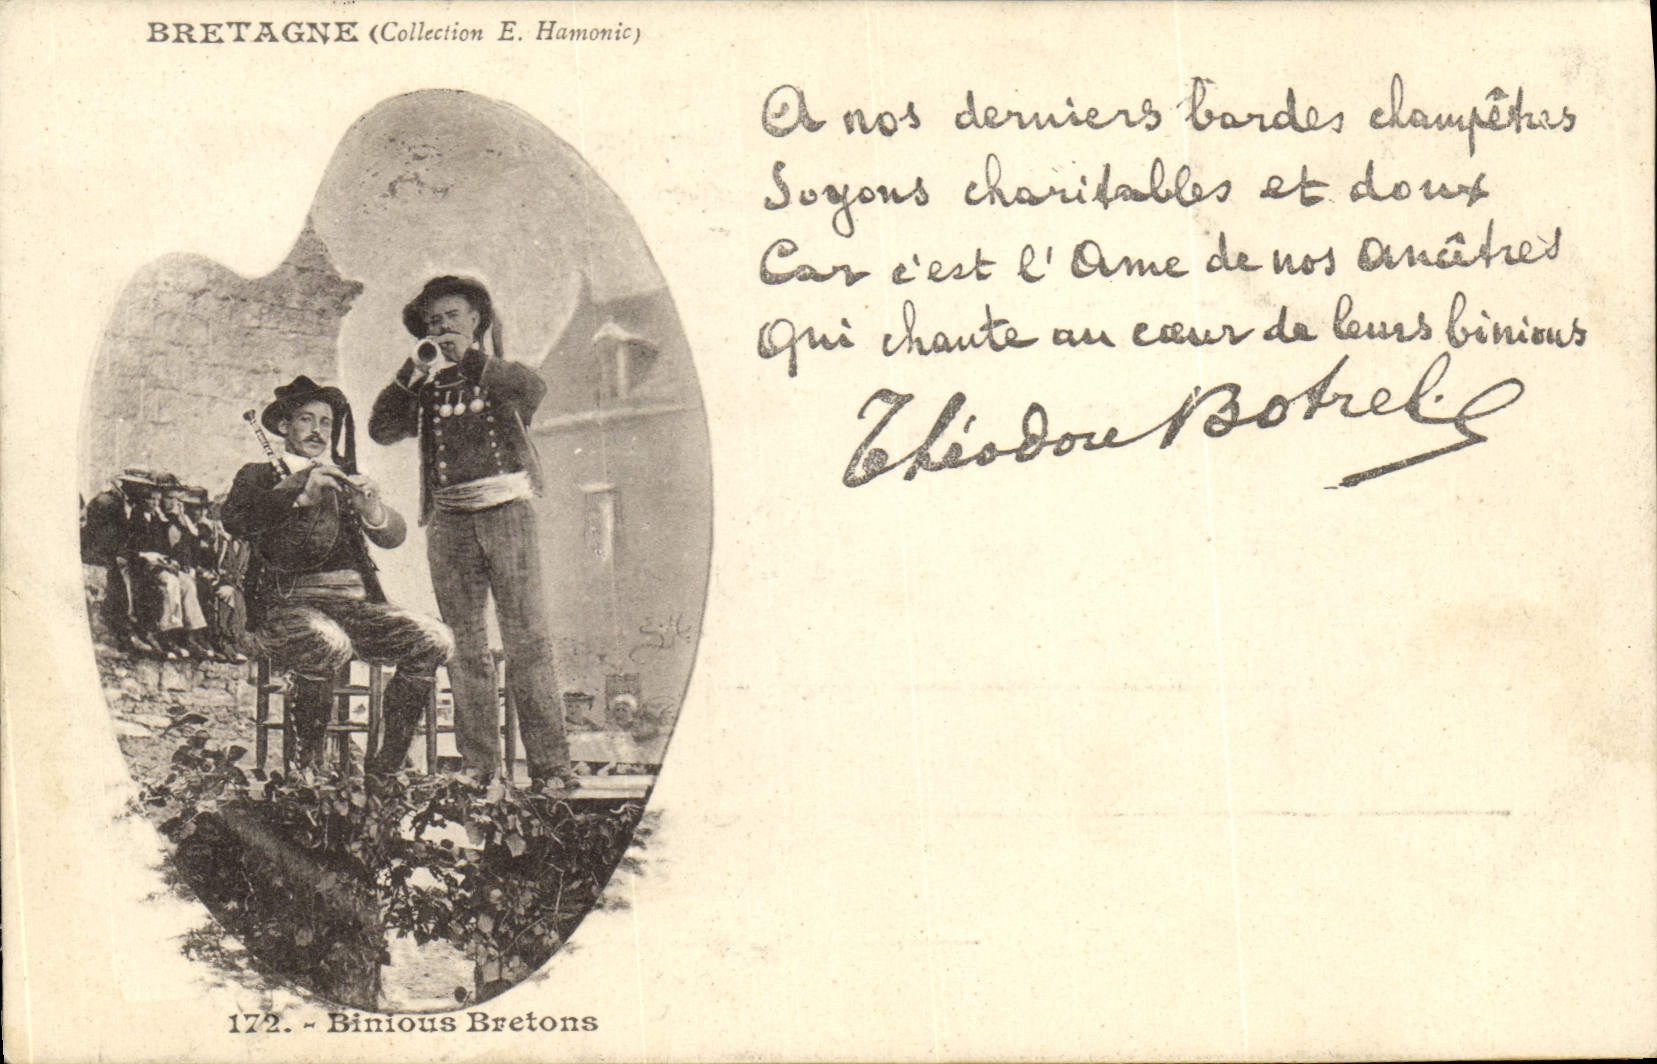 BRETAGNE (Collection E. Hamonic)
A nos derniers bardes champêtres
Soyons charitables et doux
Car c'est l' Ame de nos Ancêtres
Qui chante au cœur de leurs binious
Théodore Botrel.
E.H.
172. - Binious Bretons